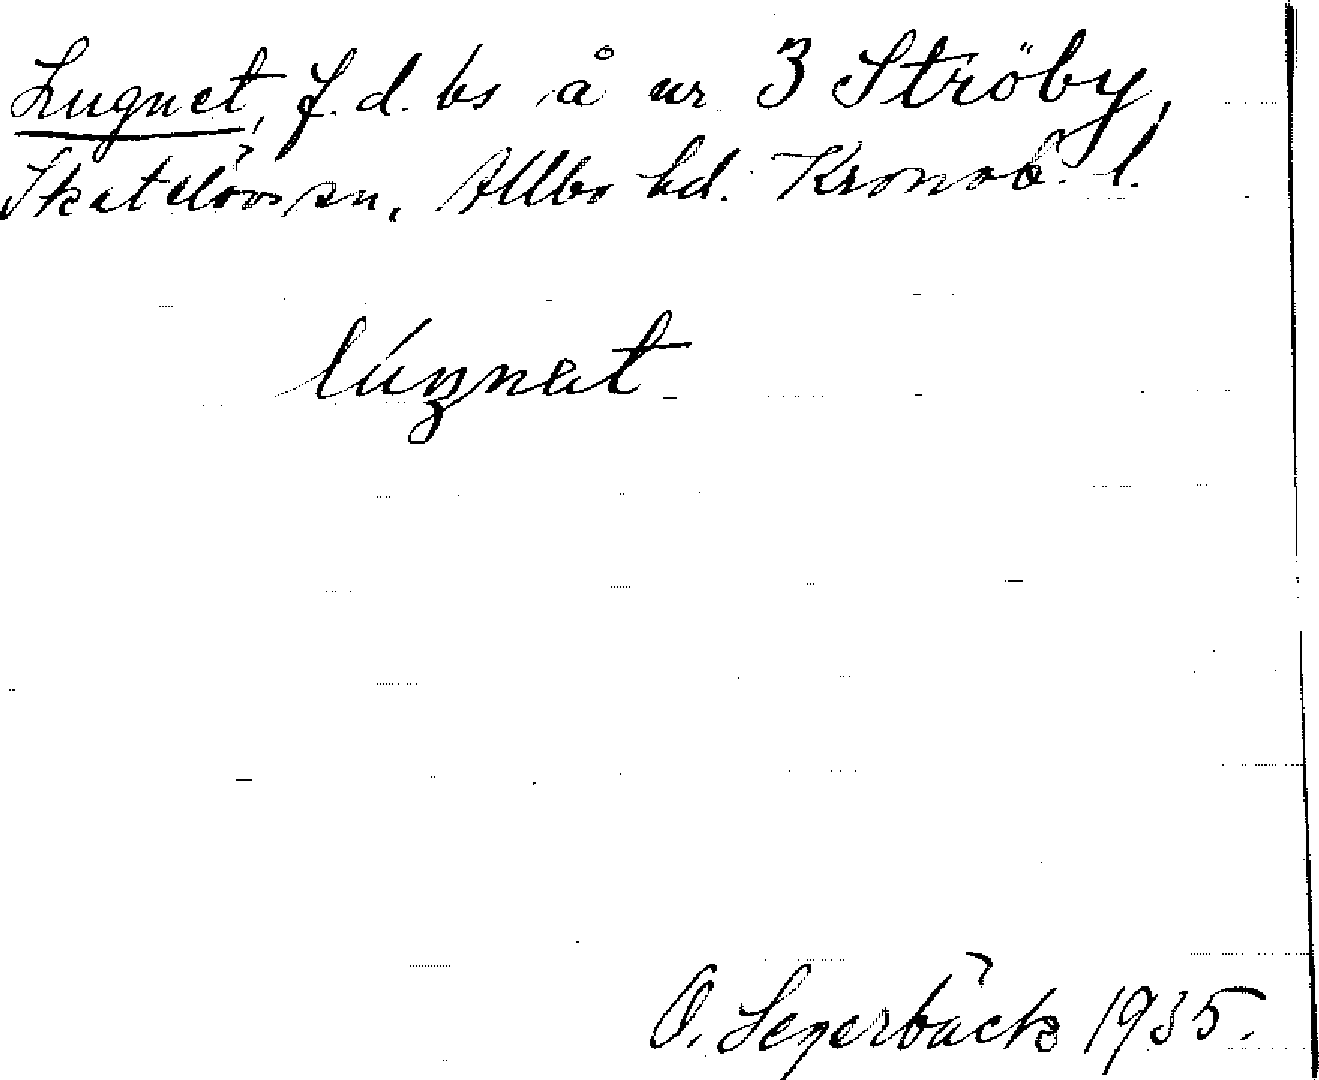 Lugnet, f.d. bs å nr 3 Ströby,
Skatelövs sn, Allbo hd. Kronob. l.
lúŋnet
O. Segerbäck 1935.